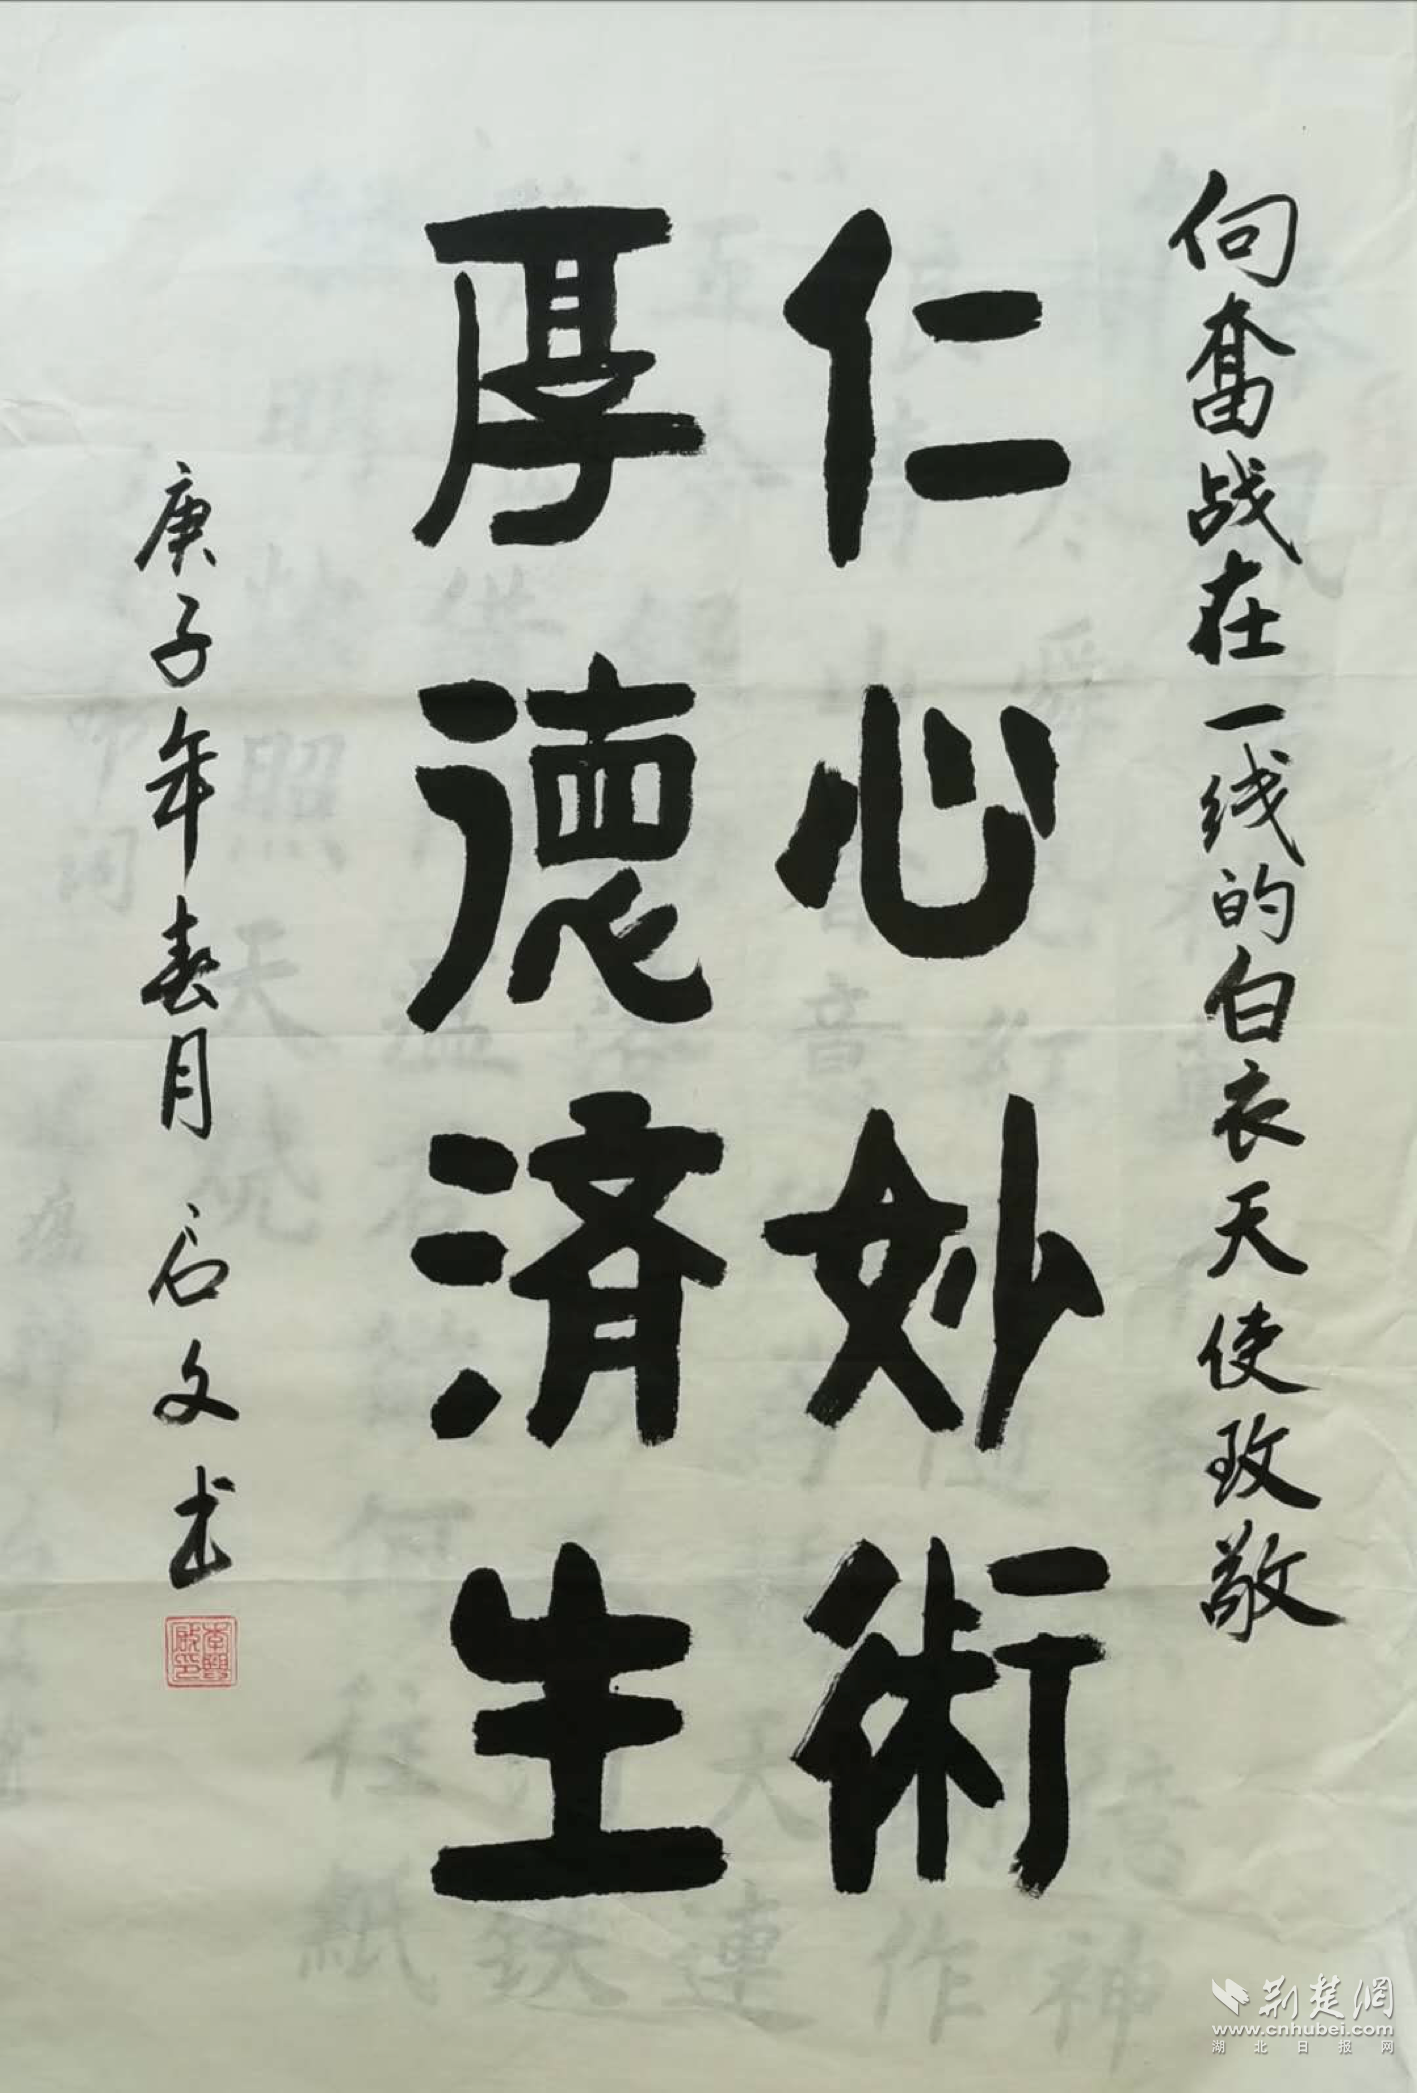 向奋战在一线的白衣天使致敬
仁心妙術
厚德済生
庚子年春月 启文书
荆楚网
www.cnhubei.com
湖北日报网